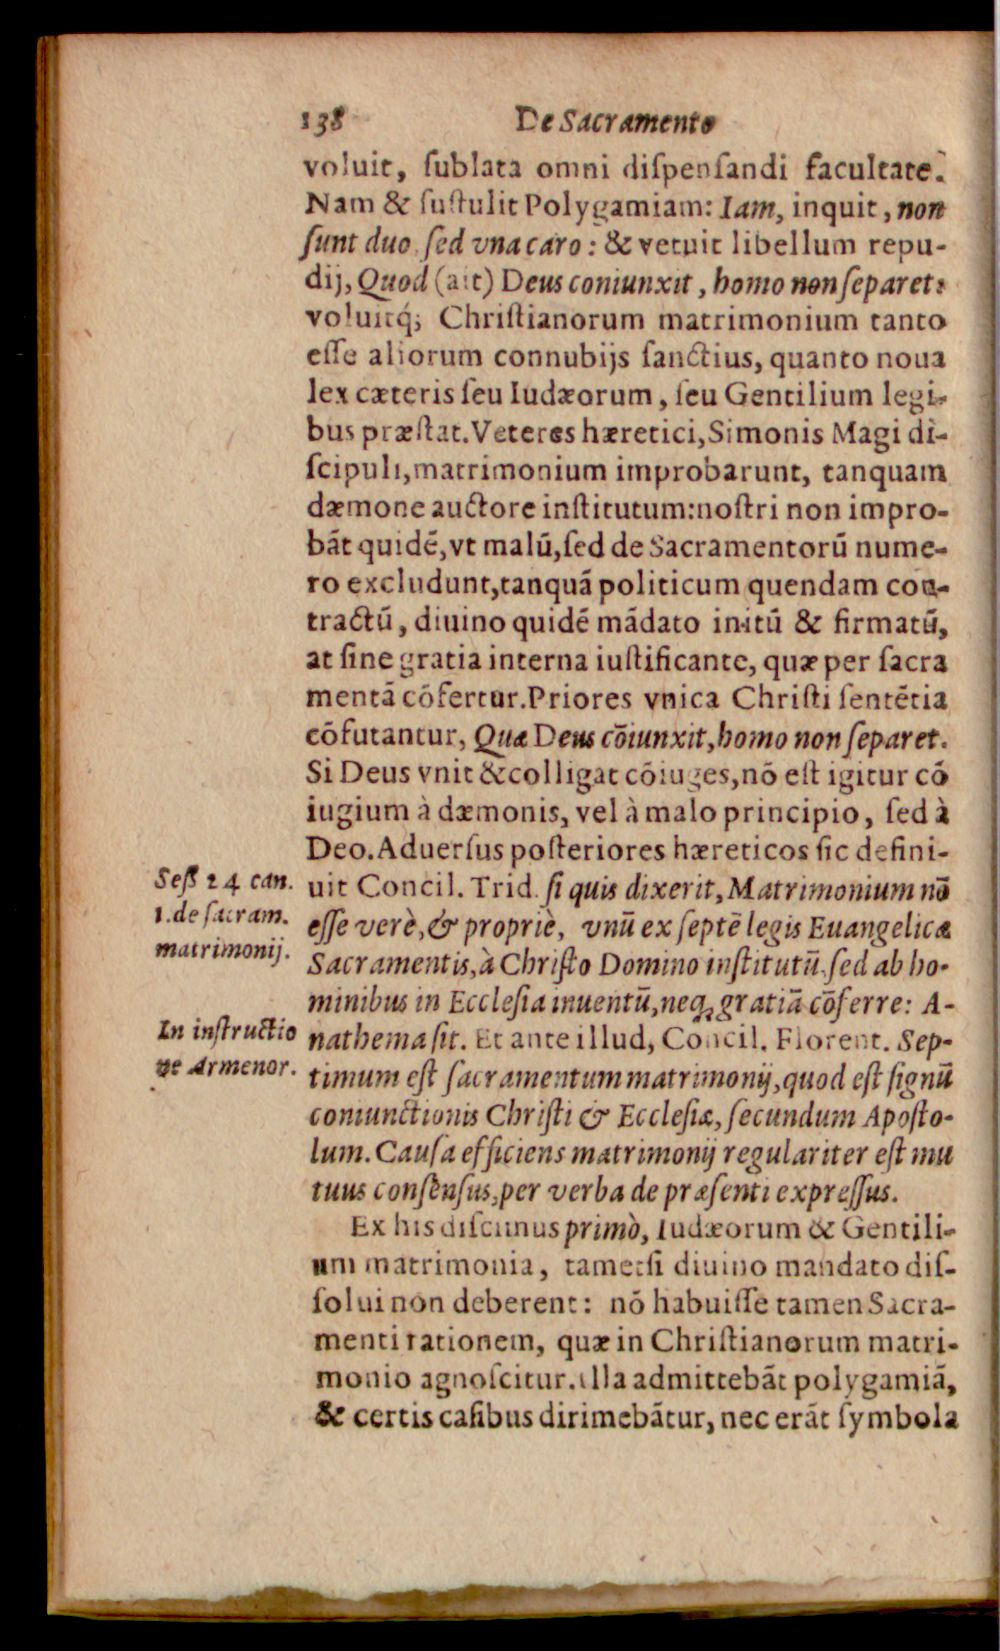 138 De Sacramento
voluit, ſublata omni diſpenſandi facultate.
Nam & ſuſtulit Polygamiam: Iam, inquit, non
ſunt duo ſed vna caro: & vetuit libellum repu-
dij, Quod (ait) Deus coniunxit, homo non ſeparet:
voluitq́; Chriſtianorum matrimonium tanto
eſſe aliorum connubijs ſanctius, quanto noua
lex cæteris ſeu Iudæorum, ſeu Gentilium legi-
bus præſtat. Veteres hæretici, Simonis Magi di-
ſcipuli, matrimonium improbarunt, tanquam
dæmone auctore inſtitutum: noſtri non impro-
bãt quidẽ, vt malũ, ſed de Sacramentorũ nume-
ro excludunt, tanquã politicum quendam con-
tractũ, diuino quidẽ mãdato initũ & firmatũ,
at ſine gratia interna iuſtificante, quæ per ſacra
mentã cõfertur. Priores vnica Chriſti ſentẽtia
cõfutantur, Quæ Deus cõiunxit, homo non ſeparet.
Si Deus vnit & colligat cõiuges, nõ eſt igitur cõ
iugium à dæmonis, vel à malo principio, ſed à
Deo. Aduerſus poſteriores hæreticos ſic defini-
Seſſ 24 can.
1. de ſacram.
matrimonij.
uit Concil. Trid. ſi quis dixerit, Matrimonium nõ
eſſe verè, & propriè, vnũ ex ſeptẽ legis Euangelicæ
Sacramentis, à Chriſto Domino inſtitutũ, ſed ab ho-
minibus in Eccleſia inuentũ, neq; gratiã cõferre: A-
In inſtructio
ne Armenor.
nathema ſit. Et ante illud, Concil. Florent. Sep-
timum eſt ſacramentum matrimonij, quod eſt ſignũ
coniunctionis Chriſti & Eccleſiæ, ſecundum Apoſto-
lum. Cauſa efficiens matrimonij regulariter eſt mu
tuus conſenſus, per verba de præſenti expreſſus.
Ex his diſcimus primò, Iudæorum & Gentili-
um matrimonia, tametſi diuino mandato diſ-
ſolui non deberent: nõ habuiſſe tamen Sacra-
menti rationem, quæ in Chriſtianorum matri-
monio agnoſcitur. illa admittebãt polygamiã,
& certis caſibus dirimebãtur, nec erãt ſymbola